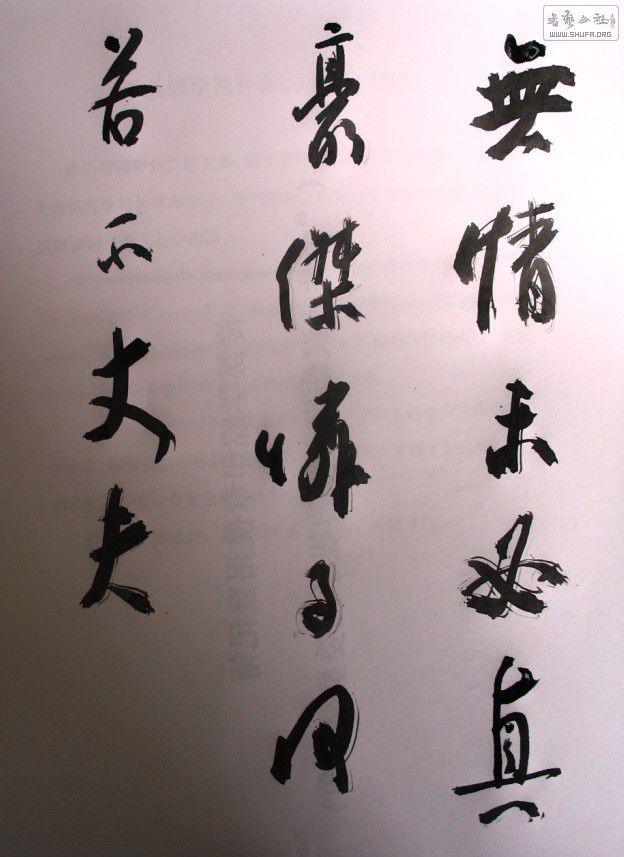 無情未必真
豪傑憐子何
若不丈夫
書藝公社
WWW.SHUFA.ORG